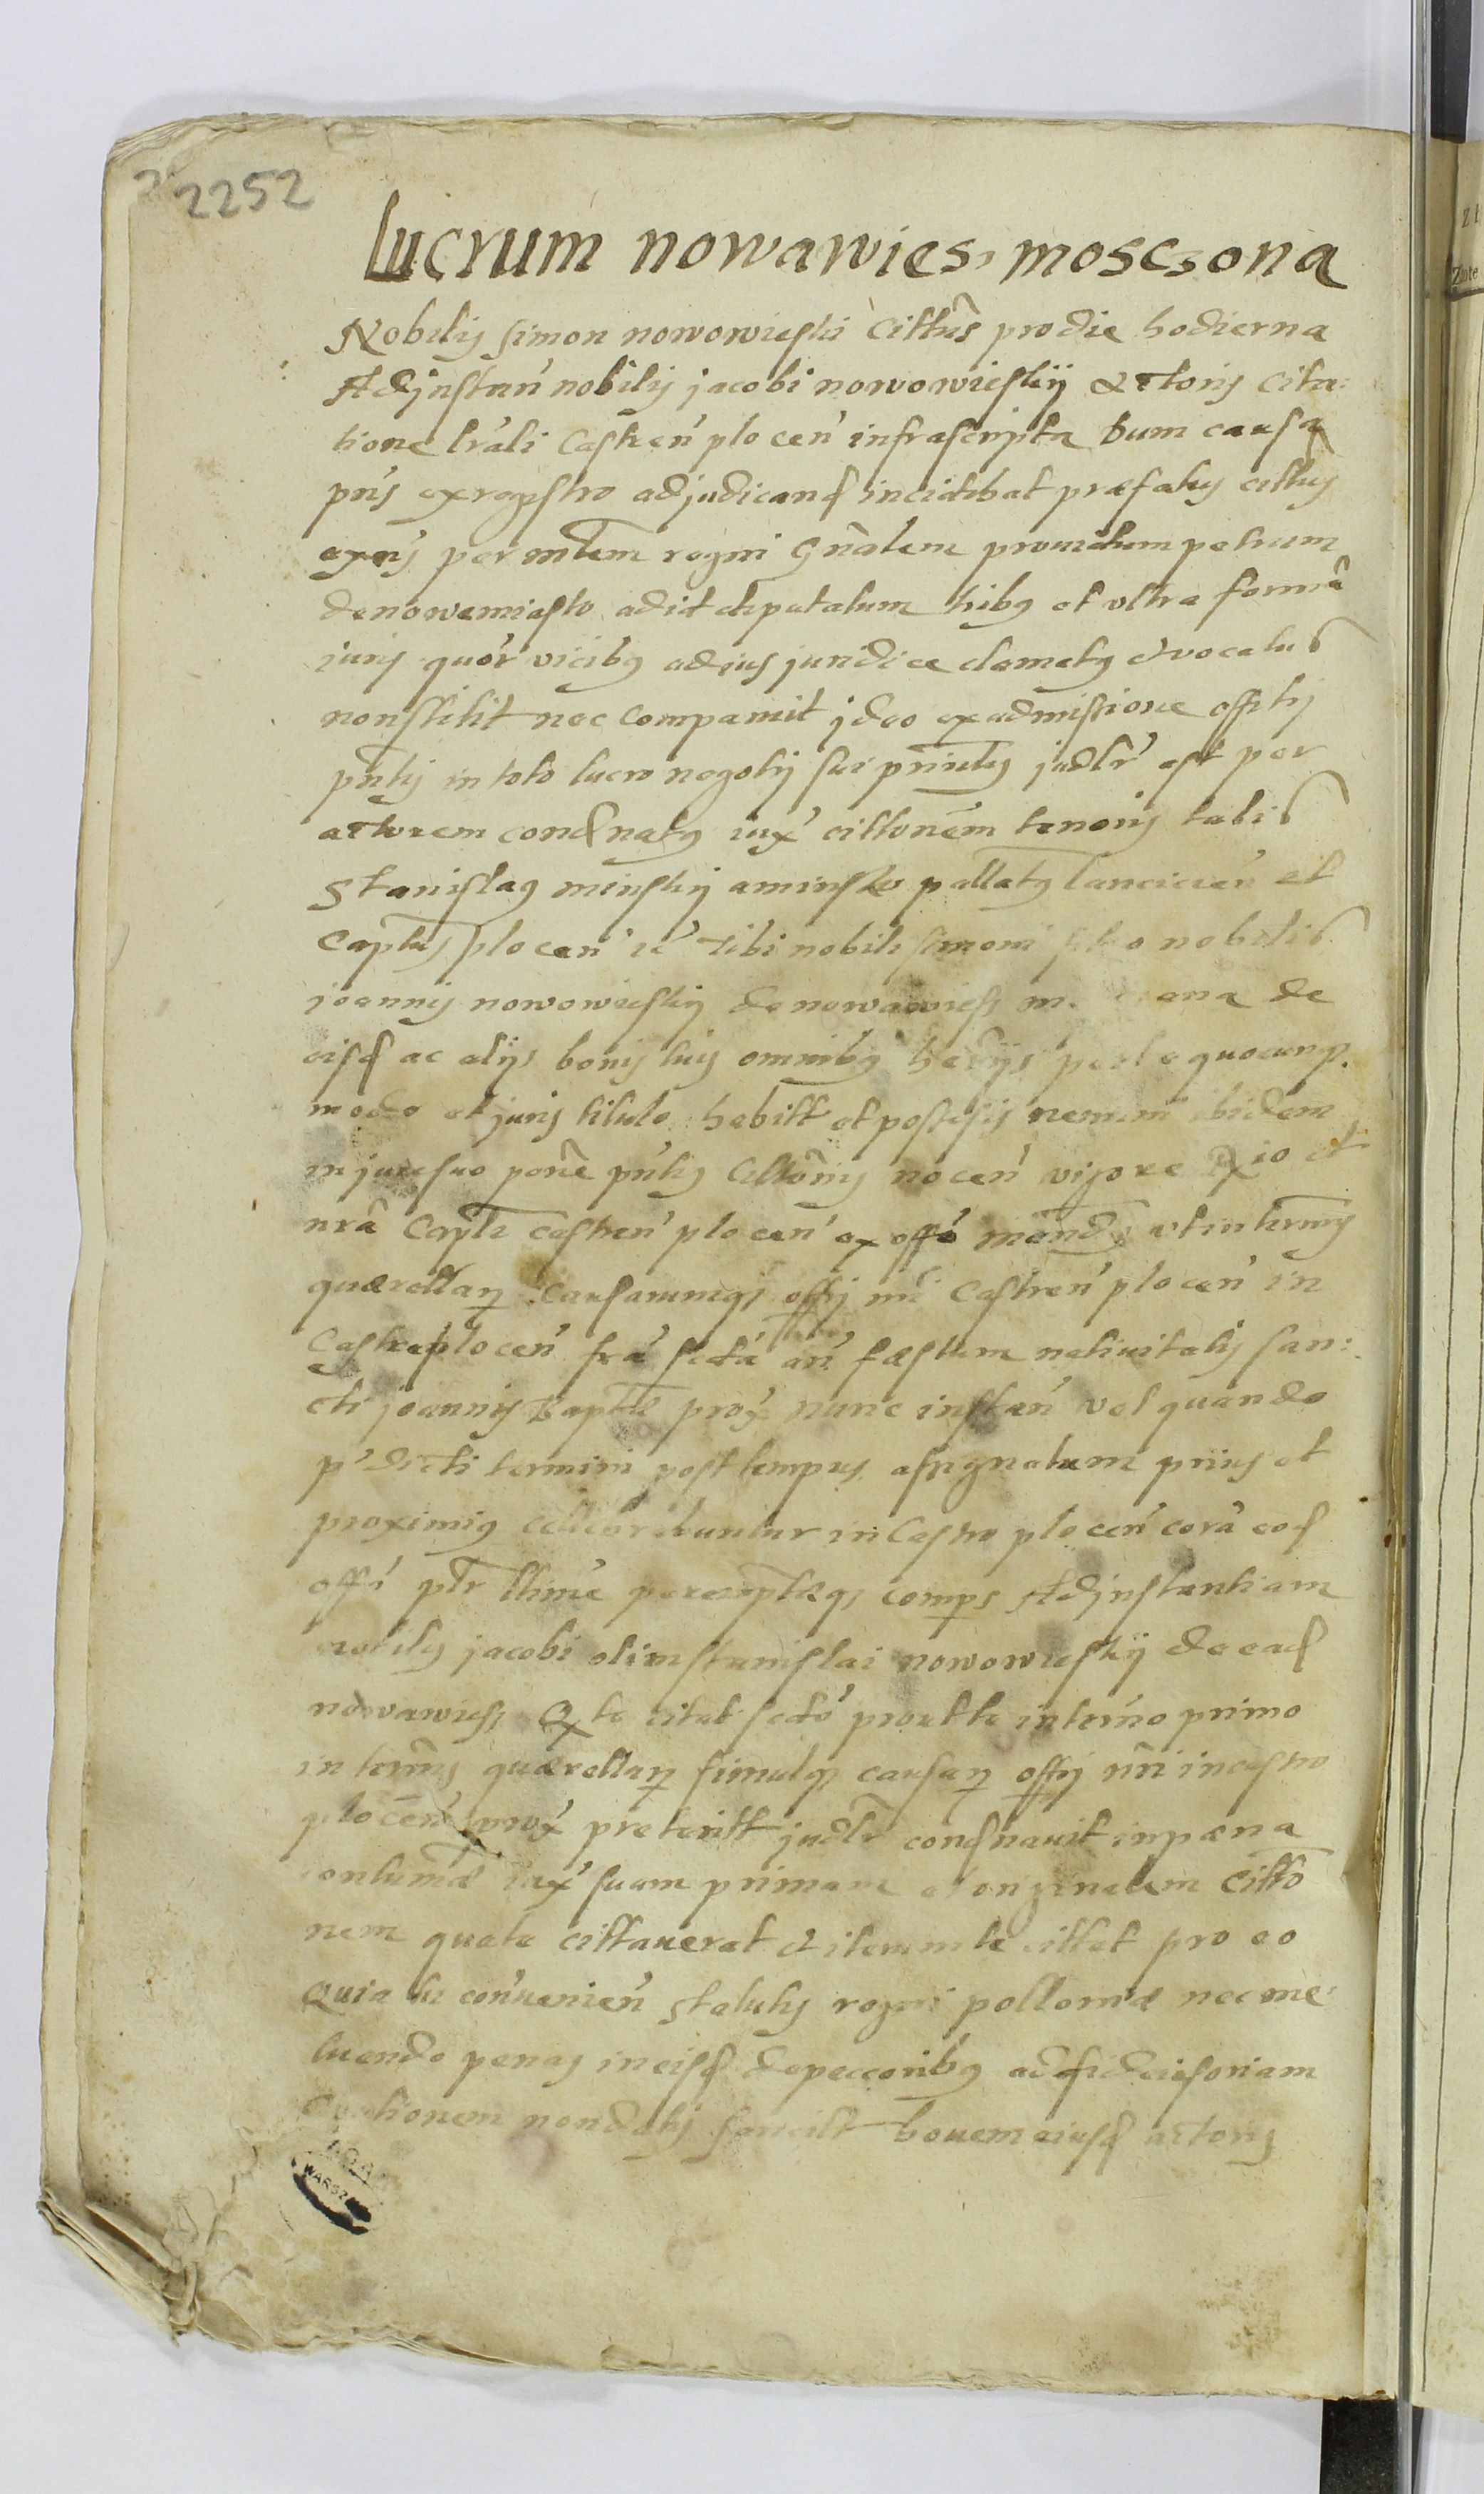 2252
Lucrum nowawies, mosczona
Nobilis simon nowowieski Cittus pro die hodierna
Ad jnstan nobilis jacobi nowowieskij Actoris cita:
tione lrali Castren plocen infrascripta Dum causa
pns ex regestro adjudicand incidebat praefatus cittus
per mlem regni Gnalem providum petrum
de nowemiasto ad id deputatum tribus et ultra forma
juris quor vicibus ad jus juridice clamatus et vocatus
non stitit nec comparuit jdeo ex admissione offitij
pntis in toto lucro negotij sui judlr est per
actorem condnatus iux cittonem tenoris talis
Stanislaus minskij a minsko pallatus lancicien et
Captus plocen tibi nobili simoni filio nobilis
joannis nowowieskij de nowawies de
eisd ac alijs bonis tuis omnibus per te quocunq
modo et juris titulo habitt et possessis ibidem
in jure suo pntis cittonis nocen vigore Rgio et
nra Captli castren plocen ex offo mandus ut in terminis
quaerellar causarumq offij nri Castren plocen in
Castro plocen fra scda an faestum nativitatis san:
cti joannis Baptae prox nunc instan vel quando
pdicti termini post tempus assignatum prius et
proximius cellebrabuntur in Castro plocen cora eod
offo comps Ad jnstantiam
nobilis jacobi olim stanislai nowowieskij de ead
nowawies Q te citat scdo prout te in termo primo
in terminis quaerellar simulq causar offij nri in castro
plocen prox preteritt judlr condnavit in paena
contumae iux suam primam et originalem citto
nem qua te cittaverat et iterum te cittat pro eo
Quia tu statutis regni polloniae nec me:
tuendo penas in eisd de peccoribus ad fideiusoriam
Cautionem non datis bovem eiusd actoris